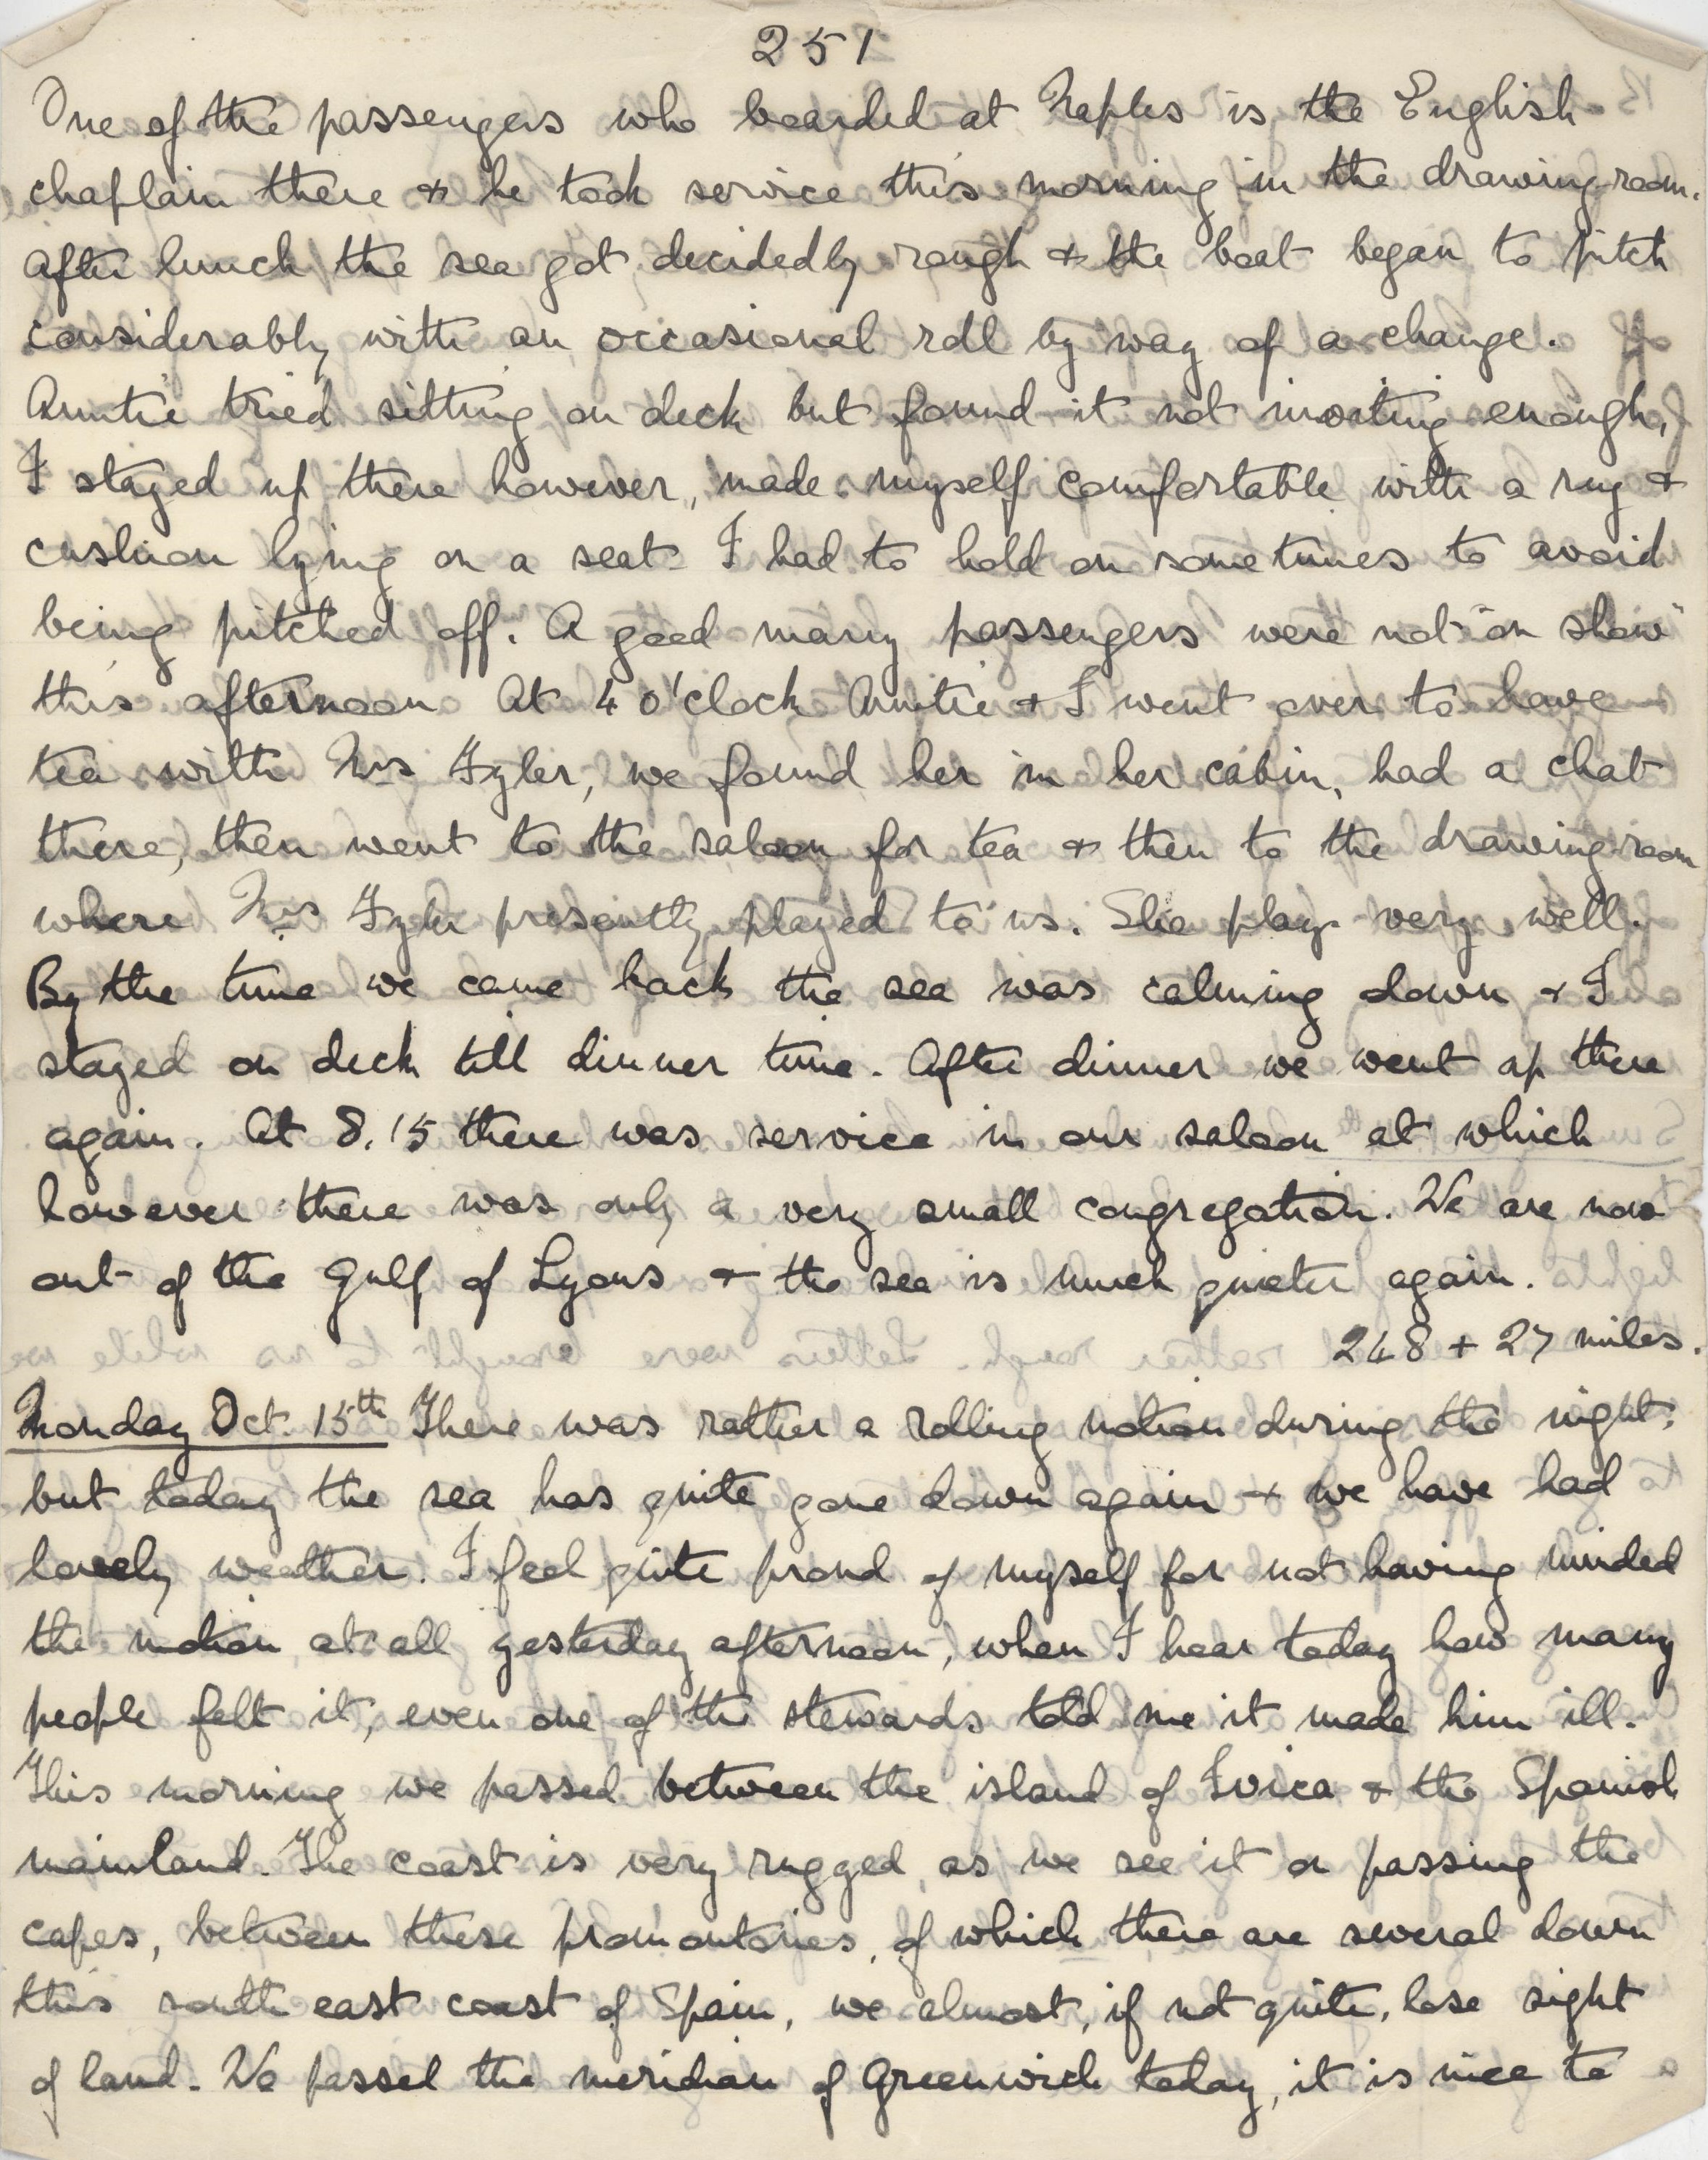 251
One of the passengers who boarded at Naples is the English
chaplain there & he took service this morning in the drawing-room.
After lunch the sea got decidedly rough & the boat began to pitch
considerably with an occasional roll by way of a change.
Auntie tried sitting on deck but found it not inviting enough,
I stayed up there however, made myself comfortable with a rug &
cushion lying on a seat. I had to hold on sometimes to avoid
being pitched off. A good many passengers were not "on show"
this afternoon. At 4 o'clock Auntie & I went over to have
tea with Mrs Tyler, we found her in her cabin, had a chat
there, then went to the saloon for tea & then to the drawing-room
where Mrs Tyler presently played to us. She plays very well.
By the time we came back the sea was calming down & I
stayed on deck till dinner time. After dinner we went up there
again. At 8.15 there was service in our saloon at which
however there was only a very small congregation. We are now
out of the Gulf of Lyons & the sea is much quieter again.
248 + 27 miles.
Monday Oct. 15th There was rather a rolling motion during the night,
but today the sea has quite gone down again & we have had
lovely weather. I feel quite proud of myself for not having minded
the motion at all yesterday afternoon, when I hear today how many
people felt it, even one of the stewards told me it made him ill.
This morning we passed between the island of Ivica & the Spanish
mainland. The coast is very rugged, as we see it on passing the
capes, between these promontories, of which there are several down
this south east coast of Spain, we almost, if not quite, lose sight
of land. We passed the meridian of Greenwich today, it is nice to